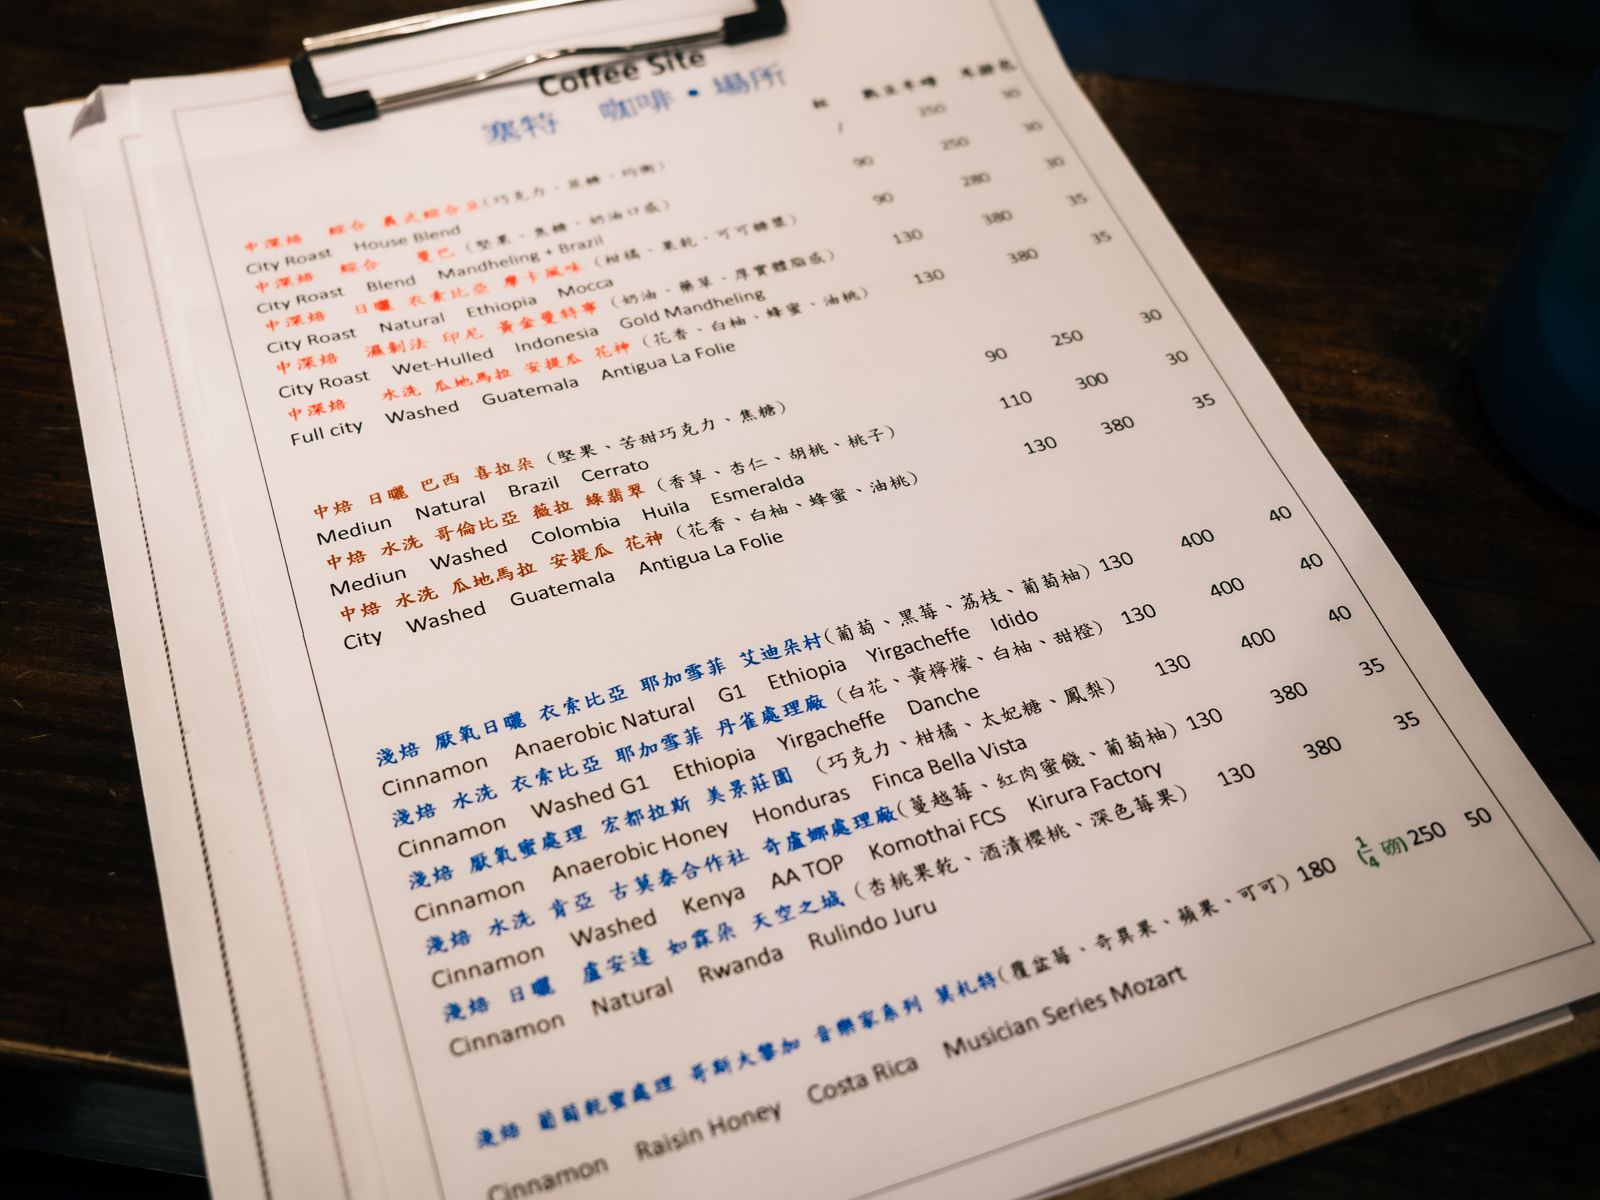 Coffee Site
塞特 咖啡•場所
杯 熱豆半磅 耳掛包
中深焙 綜合 義式綜合豆(巧克力、蔗糖、均衡) / 250 30
City Roast House Blend
中深焙 綜合 曼巴 (堅果、焦糖、奶油口感) 90 250 30
City Roast Blend Mandheling + Brazil
中深焙 日曬 衣索比亞 摩卡風味 (柑橘、果乾、可可糖漿) 90 280 30
City Roast Natural Ethiopia Mocca
中深焙 濕剝法 印尼 黃金曼特寧 (奶油、藥草、厚實體脂感) 130 380 35
City Roast Wet-Hulled Indonesia Gold Mandheling
中深焙 水洗 瓜地馬拉 安提瓜 花神 (花香、白柚、蜂蜜、油桃) 130 380 35
Full city Washed Guatemala Antigua La Folie
中焙 日曬 巴西 喜拉朵 (堅果、苦甜巧克力、焦糖) 90 250 30
Mediun Natural Brazil Cerrato
中焙 水洗 哥倫比亞 薇拉 綠翡翠 (香草、杏仁、胡桃、桃子) 110 300 30
Mediun Washed Colombia Huila Esmeralda
中焙 水洗 瓜地馬拉 安提瓜 花神 (花香、白柚、蜂蜜、油桃) 130 380 35
City Washed Guatemala Antigua La Folie
淺焙 厭氧日曬 衣索比亞 耶加雪菲 艾迪朵村(葡萄、黑莓、荔枝、葡萄柚) 130 400 40
Cinnamon Anaerobic Natural G1 Ethiopia Yirgacheffe Idido
淺焙 水洗 衣索比亞 耶加雪菲 丹雀處理廠 (白花、黃檸檬、白柚、甜橙) 130 400 40
Cinnamon Washed G1 Ethiopia Yirgacheffe Danche
淺焙 厭氧蜜處理 宏都拉斯 美景莊園 (巧克力、柑橘、太妃糖、鳳梨) 130 400 40
Cinnamon Anaerobic Honey Honduras Finca Bella Vista
淺焙 水洗 肯亞 古莫泰合作社 奇盧娜處理廠(蔓越莓、紅肉蜜餞、葡萄柚) 130 380 35
Cinnamon Washed Kenya AA TOP Komothai FCS Kirura Factory
淺焙 日曬 盧安達 如霖朵 天空之城 (杏桃果乾、酒漬櫻桃、深色莓果) 130 380 35
Cinnamon Natural Rwanda Rulindo Juru
淺焙 葡萄乾蜜處理 哥斯大黎加 音樂家系列 莫札特(覆盆莓、奇異果、蘋果、可可) 180 (1/4 磅) 250 50
Cinnamon Raisin Honey Costa Rica Musician Series Mozart